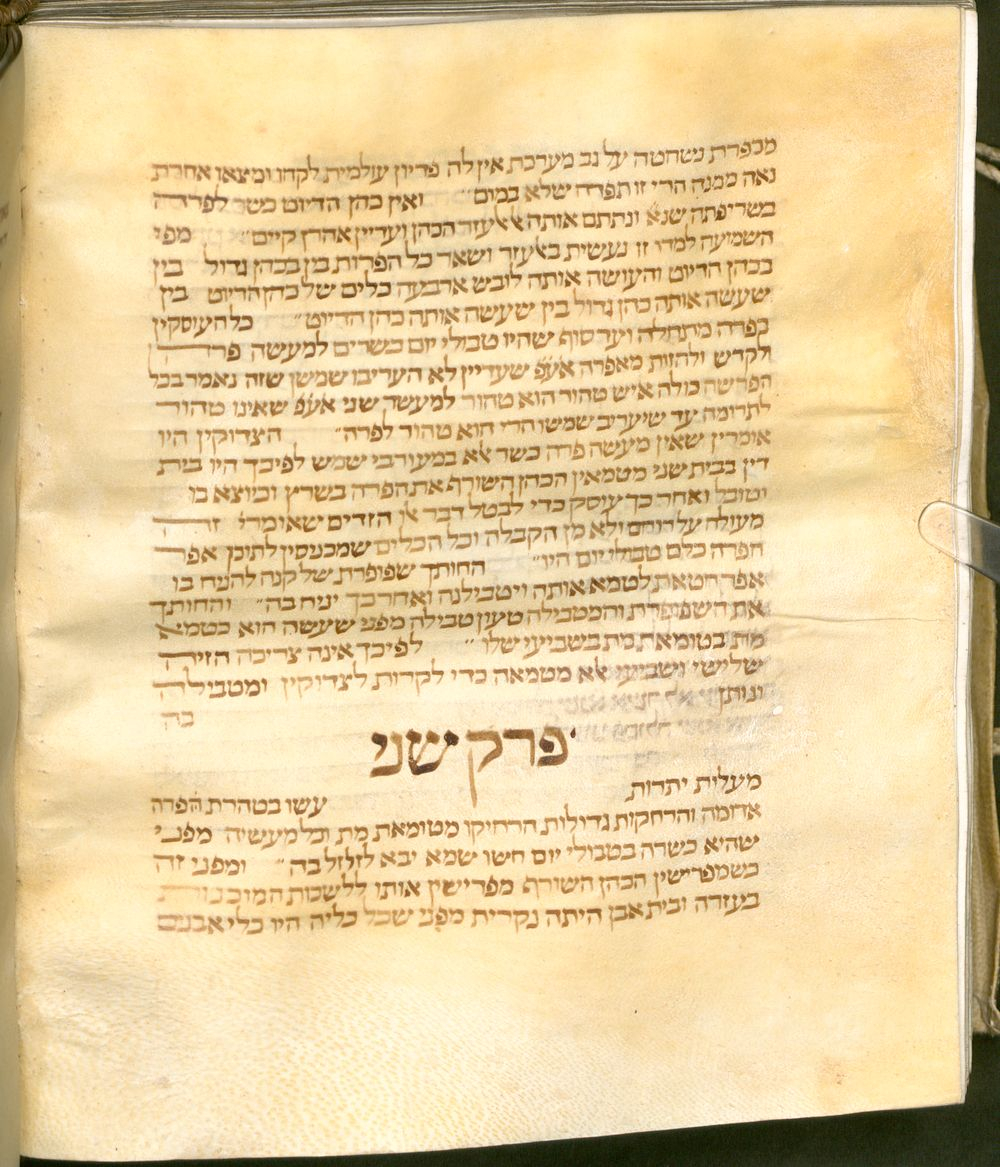 מכפרת נשחטה על גב מערכת אין לה פדיון עולמית לקחו ומצאו אחרת
נאה ממנה הרי זו תפדה שלא במום״ ואין כהן הדיוט כשר לפרה
בשריפתה שנא׳ ונתתם אותה אל אלעזר הכהן ועדיין אהרן קיים״ מפי
השמועה למדו זו נעשית באלעזר ושאר כל הפרות בין בכהן גדול בין
בכהן הדיוט והעושה אותה לובש ארבעה כלים של כהן הדיוט בין
שעשה אותה כהן גדול בין שעשה אותה כהן הדיוט״ כל העוסקין
בפרה מתחלה ועד סוף שהיו טבולי יום כשרים למעשה פרה
ולקדש ולהזות מאפרה אעפ שעדיין לא העריבו שמשן שזה נאמר בכל
הפרשה כולה איש טהור הוא טהור למעשר שני אעפ שאינו טהור
לתרומה עד שיעריב שמשו הרי הוא טהור לפרה״ הצדוקין היו
אומרין שאין מעשה פרה כשר אלא במעורבי שמש לפיכך היו בית
דין בבית שני מטמאין הכהן השורף את הפרה בשרץ וכיוצא בו
וטובל ואחר כך עוסק כדי לבטל דבר אלו הזדים שאומרי׳
מעולה על רוחם ולא מן הקבלה וכל הכלים שמכניסין לתוכן אפר
הפרה כלם טבולי יום היו״ החותך שפופרת של קנה להניח בו
אפר חטאת לטמא אותה ויטבילנה ואחר כך יניח בה״ והחותך
את השפופרת והמטבילה טעון טבילה מפני שעשה הוא כטמא
מת בטומאת מת בשביעי שלו״ לפיכך אינה צריכה הזיה
שלישי ושביעי אלא מטמאה כדי לקרות לצדוקין ומטבילה
ונותן בה
פרק שני
מעלות יתרות עשו בטהרת הפרה
אדומה והרחקות גדולות הרחיקו מטומאת מת וכל מעשיה מפני
שהיא כשרה בטבולי יום חשו שמא יבא לזלזל בה״ ומפני זה
כשמפרישין הכהן השורף מפרישין אותו ללשכות המוכנות
בעזרה ובית אבן היתה נקרית מפני שכל כליה היו כלי אבנים